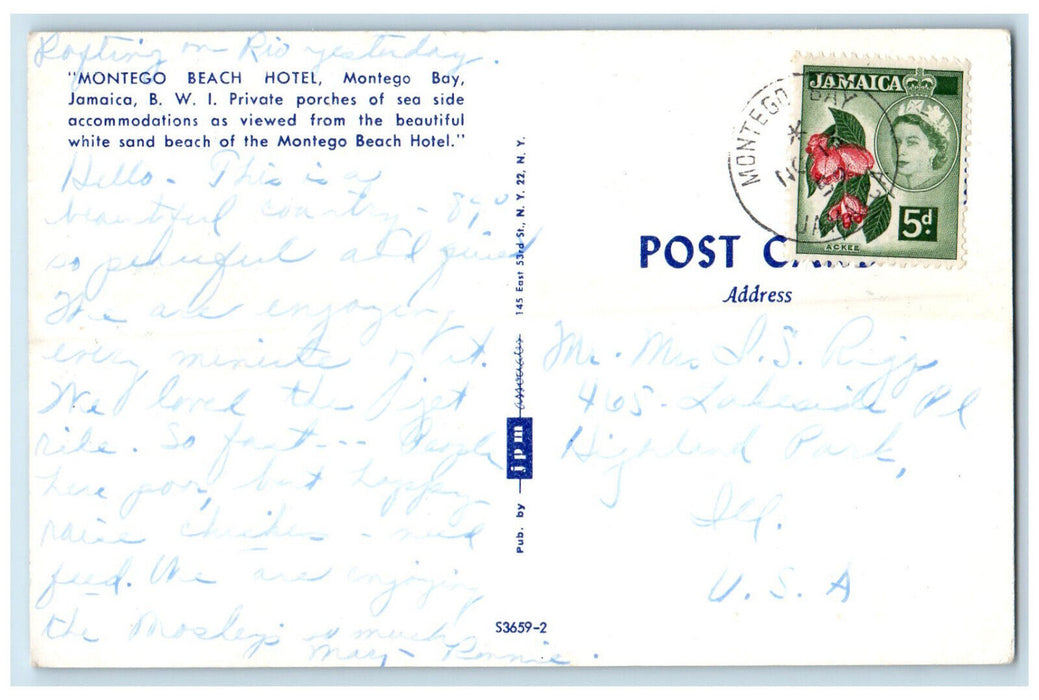 Rafting on Rio yesterday.
"MONTEGO BEACH HOTEL, Montego Bay,
Jamaica, B. W. I. Private porches of sea side
accommodations as viewed from the beautiful
white sand beach of the Montego Beach Hotel."
Hello - This is a
beautiful country -
so peaceful and
We are enjoying
every minute of it.
We loved the jet
ride. So fast --- People
here poor, but happy
raise chicken - need
feed. We are enjoying
the Mosley's so much
Mary - Ronnie.
Pub. by jpm associates 145 East 53rd St., N. Y. 22, N. Y.
S3659-2
MONTEGO BAY
JAMAICA
5d
ACKEE
POST CARD
Address
Mr. Mrs I. S. Riggs
465 - Lakeside Pl
Highland Park,
Ill.
U. S. A